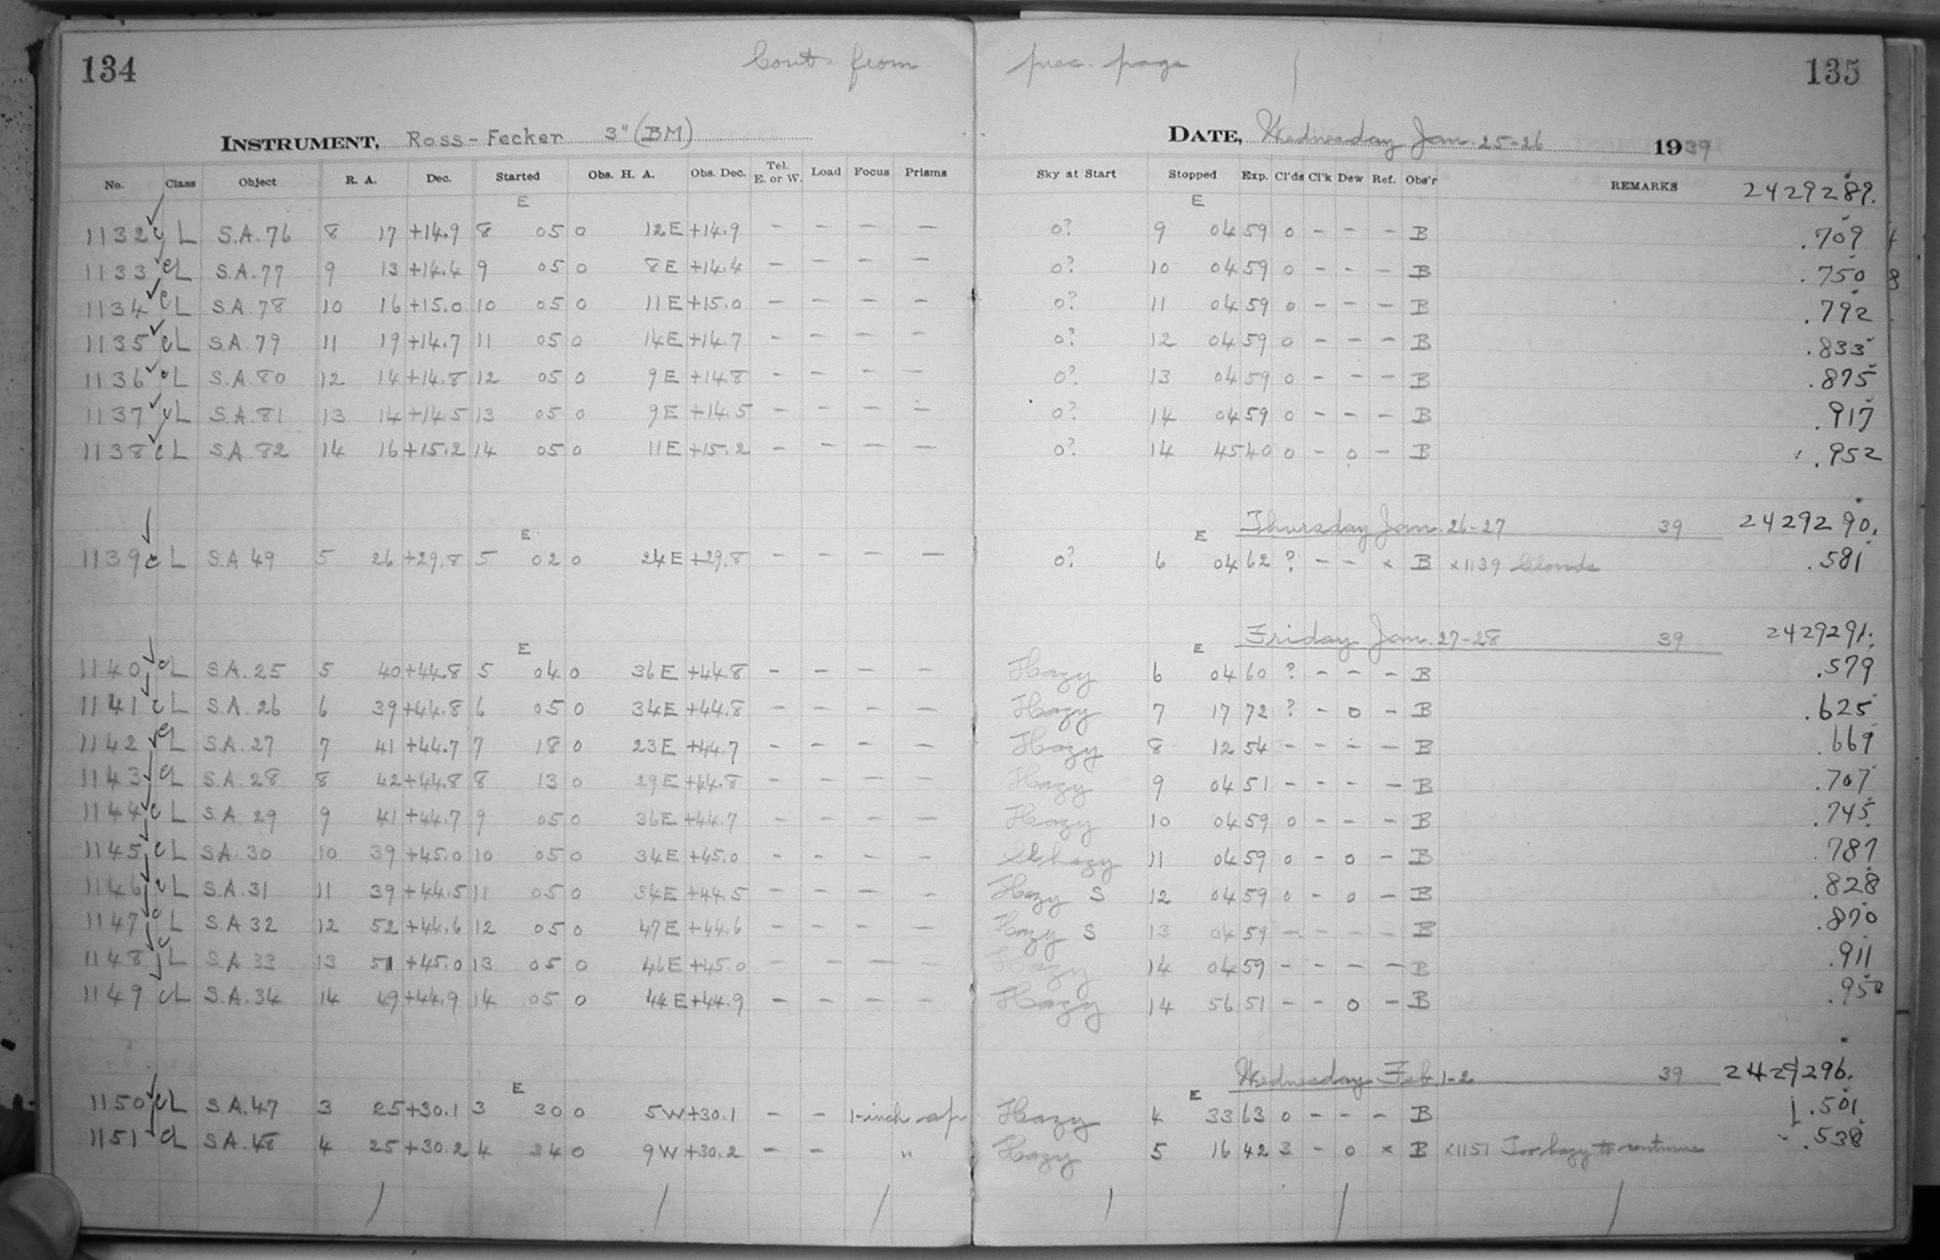 134 Cont. from prec. page 135
INSTRUMENT, Ross-Fecker 3" (BM) DATE, Wednesday Jan. 25-26 1939
No. Class Object R. A. Dec. Started Obs. H. A. Obs. Dec. Tel. E. or W. Load Focus Prisms Sky at Start Stopped Exp. Cl'ds Cl'k Dew Ref. Obs'r REMARKS 2429289.
E E
1132 c L S.A. 76 8 17 +14.9 8 05 0 12E +14.9 - - - - o? 9 04 59 0 - - - B .709
1133 c L S.A. 77 9 13 +14.4 9 05 0 8E +14.4 - - - - o? 10 04 59 0 - - - B .750
1134 c L S.A. 78 10 16 +15.0 10 05 0 11E +15.0 - - - - o? 11 04 59 0 - - - B .792
1135 c L S.A. 79 11 19 +14.7 11 05 0 14E +14.7 - - - - o? 12 04 59 0 - - - B .833
1136 c L S.A. 80 12 14 +14.8 12 05 0 9E +14.8 - - - - o? 13 04 59 0 - - - B .875
1137 c L S.A. 81 13 14 +14.5 13 05 0 9E +14.5 - - - - o? 14 04 59 0 - - - B .917
1138 c L S.A. 82 14 16 +15.2 14 05 0 11E +15.2 - - - - o? 14 45 40 0 - 0 - B .952
Thursday Jan. 26-27 39 2429290.
E E
1139 c L S.A. 49 5 26 +29.8 5 02 0 24E +29.8 - - - - o? 6 04 62 ? - - x B x1139 Clouds .581
Friday Jan. 27-28 39 2429291.
E E
1140 c L S.A. 25 5 40 +44.8 5 04 0 36E +44.8 - - - - Hazy 6 04 60 ? - - - B .579
1141 c L S.A. 26 6 39 +44.8 6 05 0 34E +44.8 - - - - Hazy 7 17 72 ? - 0 - B .625
1142 c L S.A. 27 7 41 +44.7 7 18 0 23E +44.7 - - - - Hazy 8 12 54 - - - - B .669
1143 c L S.A. 28 8 42 +44.8 8 13 0 29E +44.8 - - - - Hazy 9 04 51 - - - - B .707
1144 c L S.A. 29 9 41 +44.7 9 05 0 36E +44.7 - - - - Hazy 10 04 59 0 - - - B .745
1145 c L S.A. 30 10 39 +45.0 10 05 0 34E +45.0 - - - - hazy 11 04 59 0 - 0 - B .787
1146 c L S.A. 31 11 39 +44.5 11 05 0 34E +44.5 - - - - Hazy S 12 04 59 0 - 0 - B .828
1147 c L S.A. 32 12 52 +44.6 12 05 0 47E +44.6 - - - - Hazy S 13 04 59 - - - - B .870
1148 c L S.A. 33 13 51 +45.0 13 05 0 46E +45.0 - - - - Hazy 14 04 59 - - - - B .911
1149 c L S.A. 34 14 49 +44.9 14 05 0 44E +44.9 - - - - Hazy 14 56 51 - - 0 - B .950
Wednesday Feb. 1-2 39 2429296.
E E
1150 c L S.A. 47 3 25 +30.1 3 30 0 5W +30.1 - - 1-inch ap Hazy 4 33 63 0 - - - B .501
1151 c L S.A. 48 4 25 +30.2 4 34 0 9W +30.2 - - " Hazy 5 16 42 3 - 0 x B x1151 Too hazy to continue .538